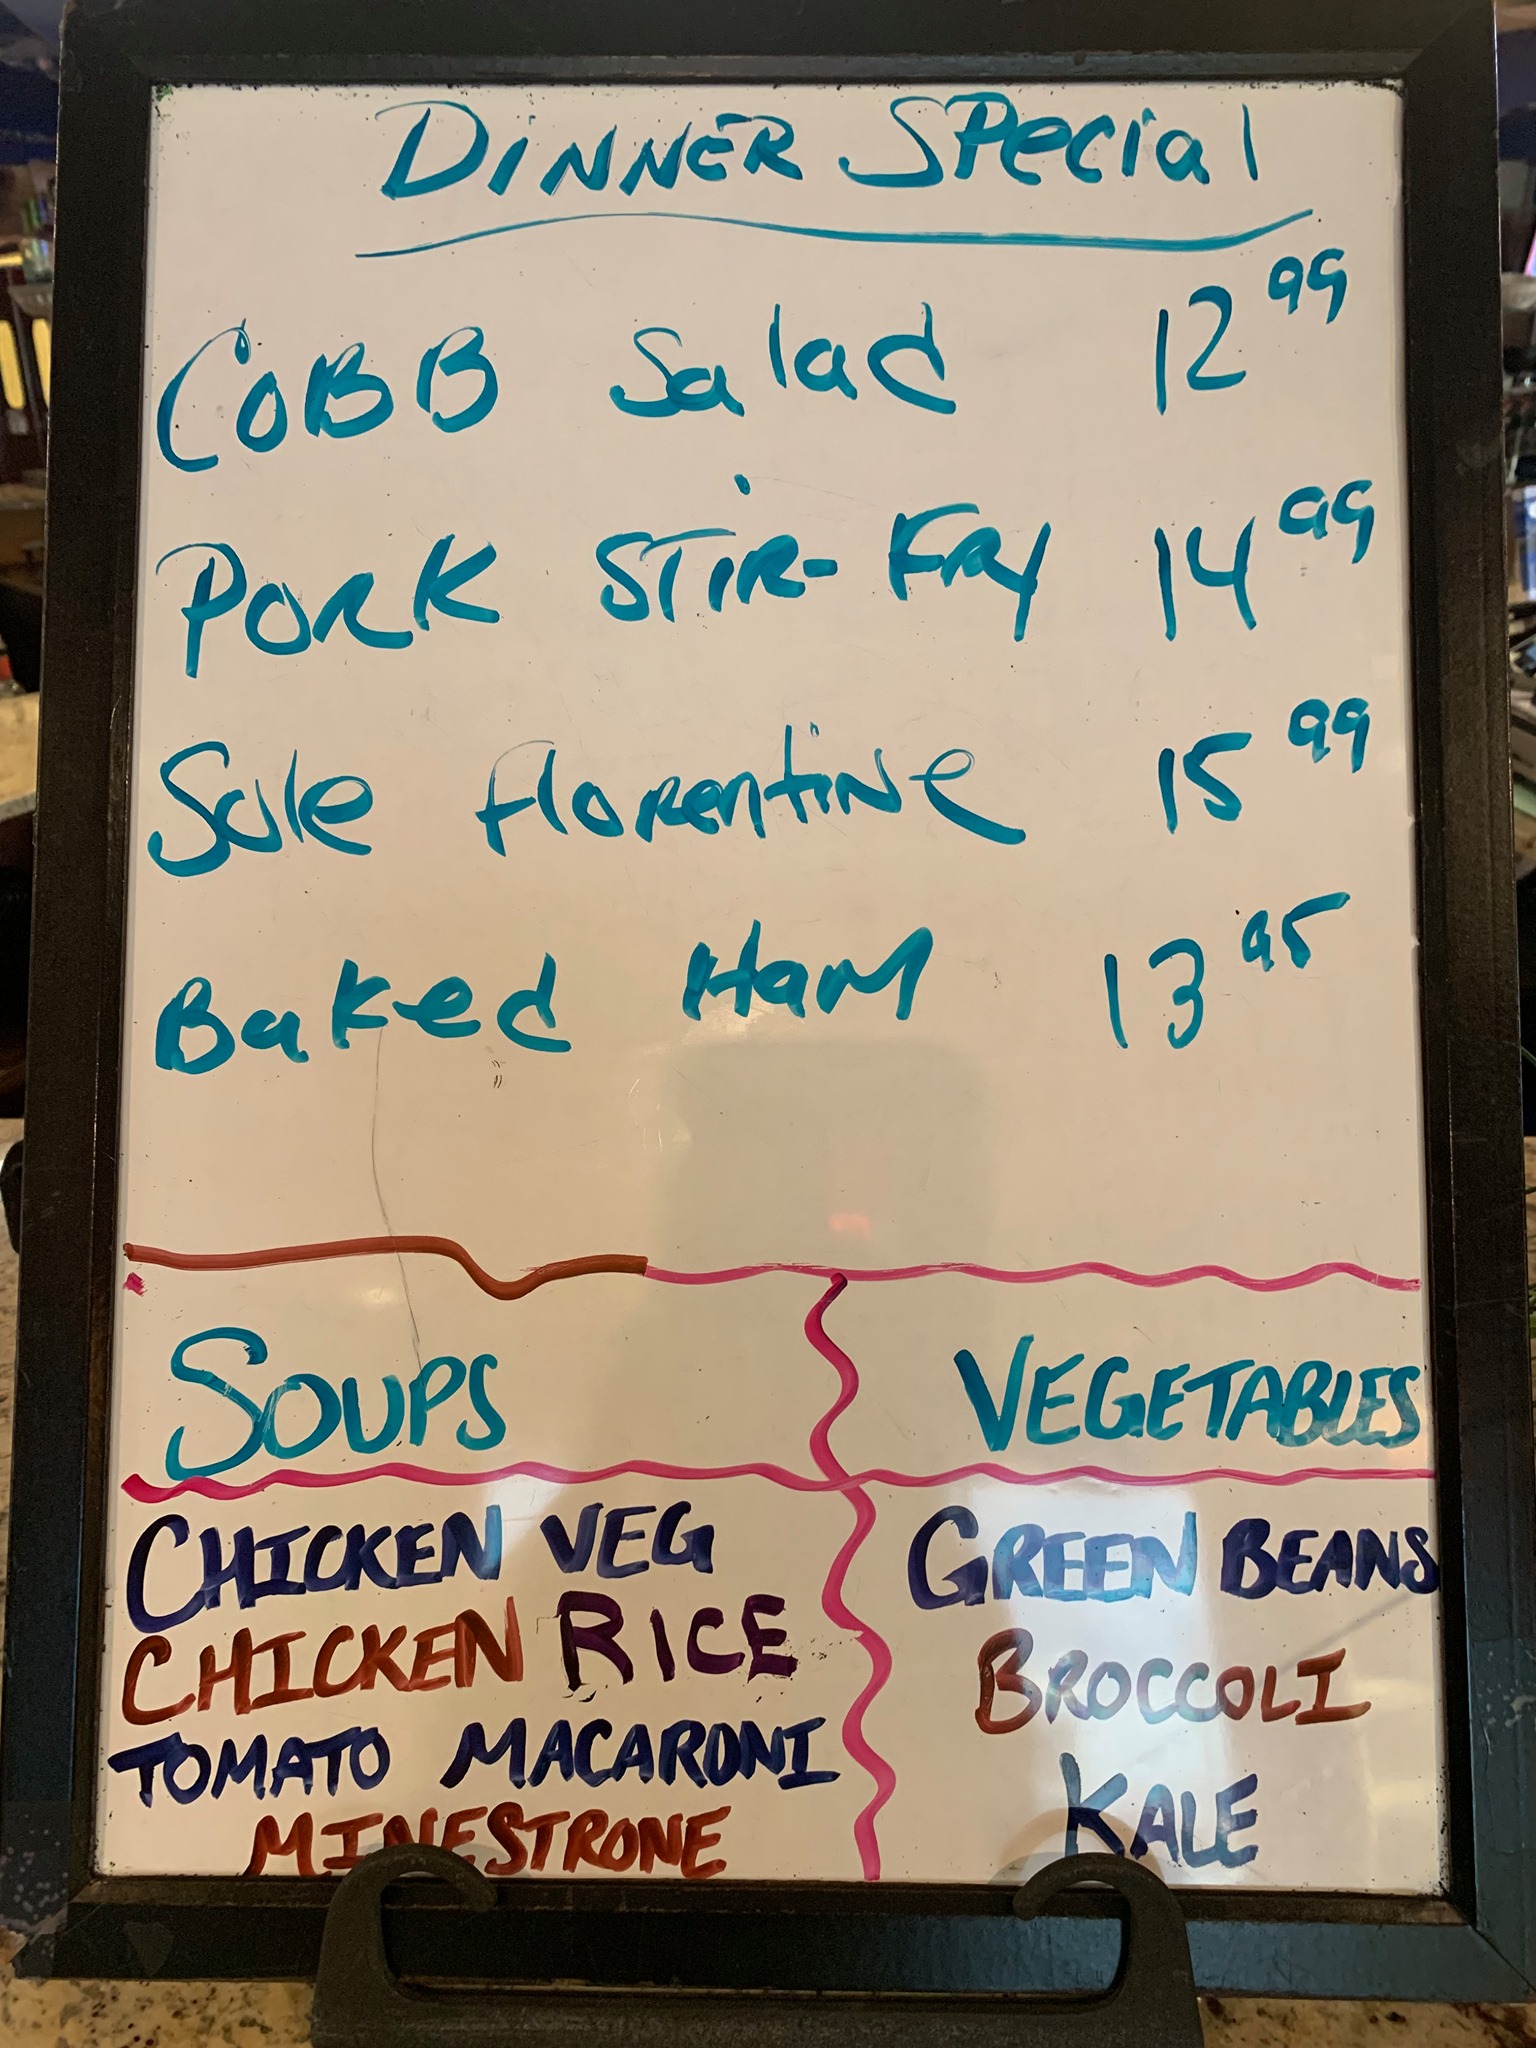 DINNER SPecial
COBB Salad 12 99
PORK STIR-FRY 14 99
Sole Florentine 15 99
Baked Ham 13 95
SOUPS
CHICKEN VEG
CHICKEN RICE
TOMATO MACARONI
MINESTRONE
VEGETABLES
GREEN BEANS
BROCCOLI
KALE